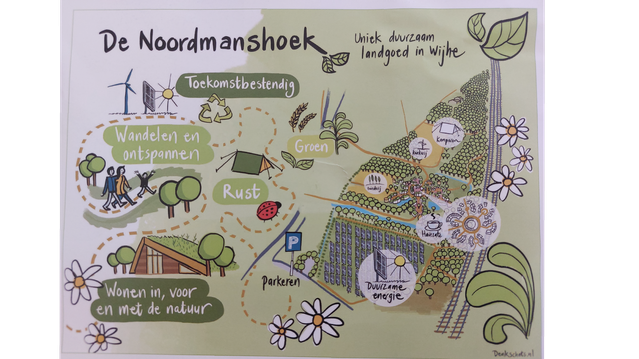 De Noordmanshoek
Uniek duurzaam
landgoed in Wijhe
Toekomstbestendig
Wandelen en
ontspannen
Groen
Kamperen
Rust
P
Parkeren
Duurzame
energie
Wonen in, voor
en met de natuur